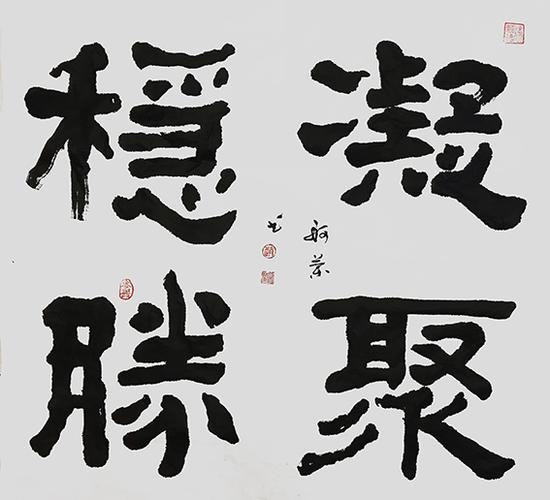 凝聚
穩勝